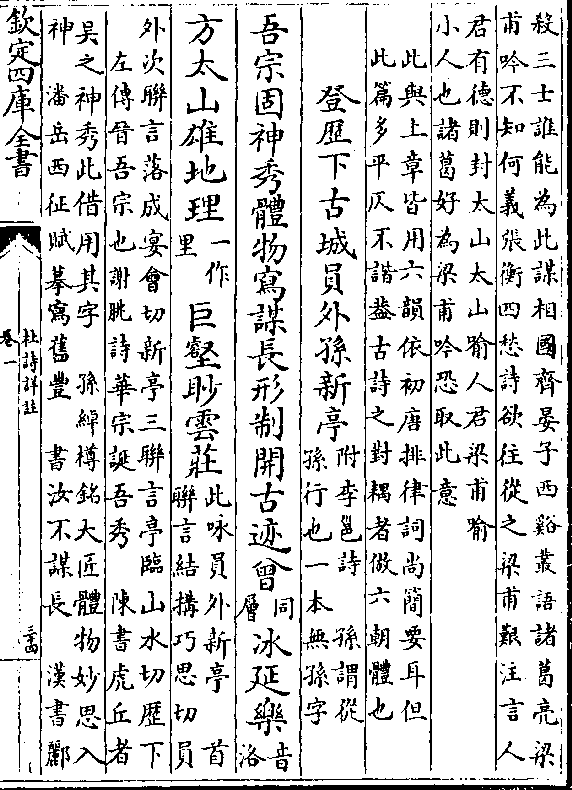 殺三士誰能為此謀相國齊晏子西谿叢語諸葛亮梁
甫吟不知何義張衡四愁詩欲往從之梁甫艱注言人
君有德則封太山太山喻人君梁甫喻
小人也諸葛好為梁甫吟恐取此意
此與上章皆用六韻依初唐排律詞尚簡要耳但
此篇多平仄不諧葢古詩之對耦者倣六朝體也
登歷下古城員外孫新亭
附李邕詩 孫謂從
孫行也一本無孫字
吾宗固神秀體物寫謀長形制開古迹曾
同
層
冰延樂
音
洛
方太山雄地理
一作
里
巨壑眇雲莊
此咏員外新亭 首
聯言結搆巧思切員
外次聯言落成宴會切新亭三聯言亭臨山水切歷下
左傳晉吾宗也謝朓詩華宗誕吾秀 陳書虎丘者
吳之神秀此借用其字 孫綽樽銘大匠體物妙思入
神 潘岳西征賦摹寫舊豐 書汝不謀長 漢書酈
欽定四庫全書
杜詩詳註
卷一